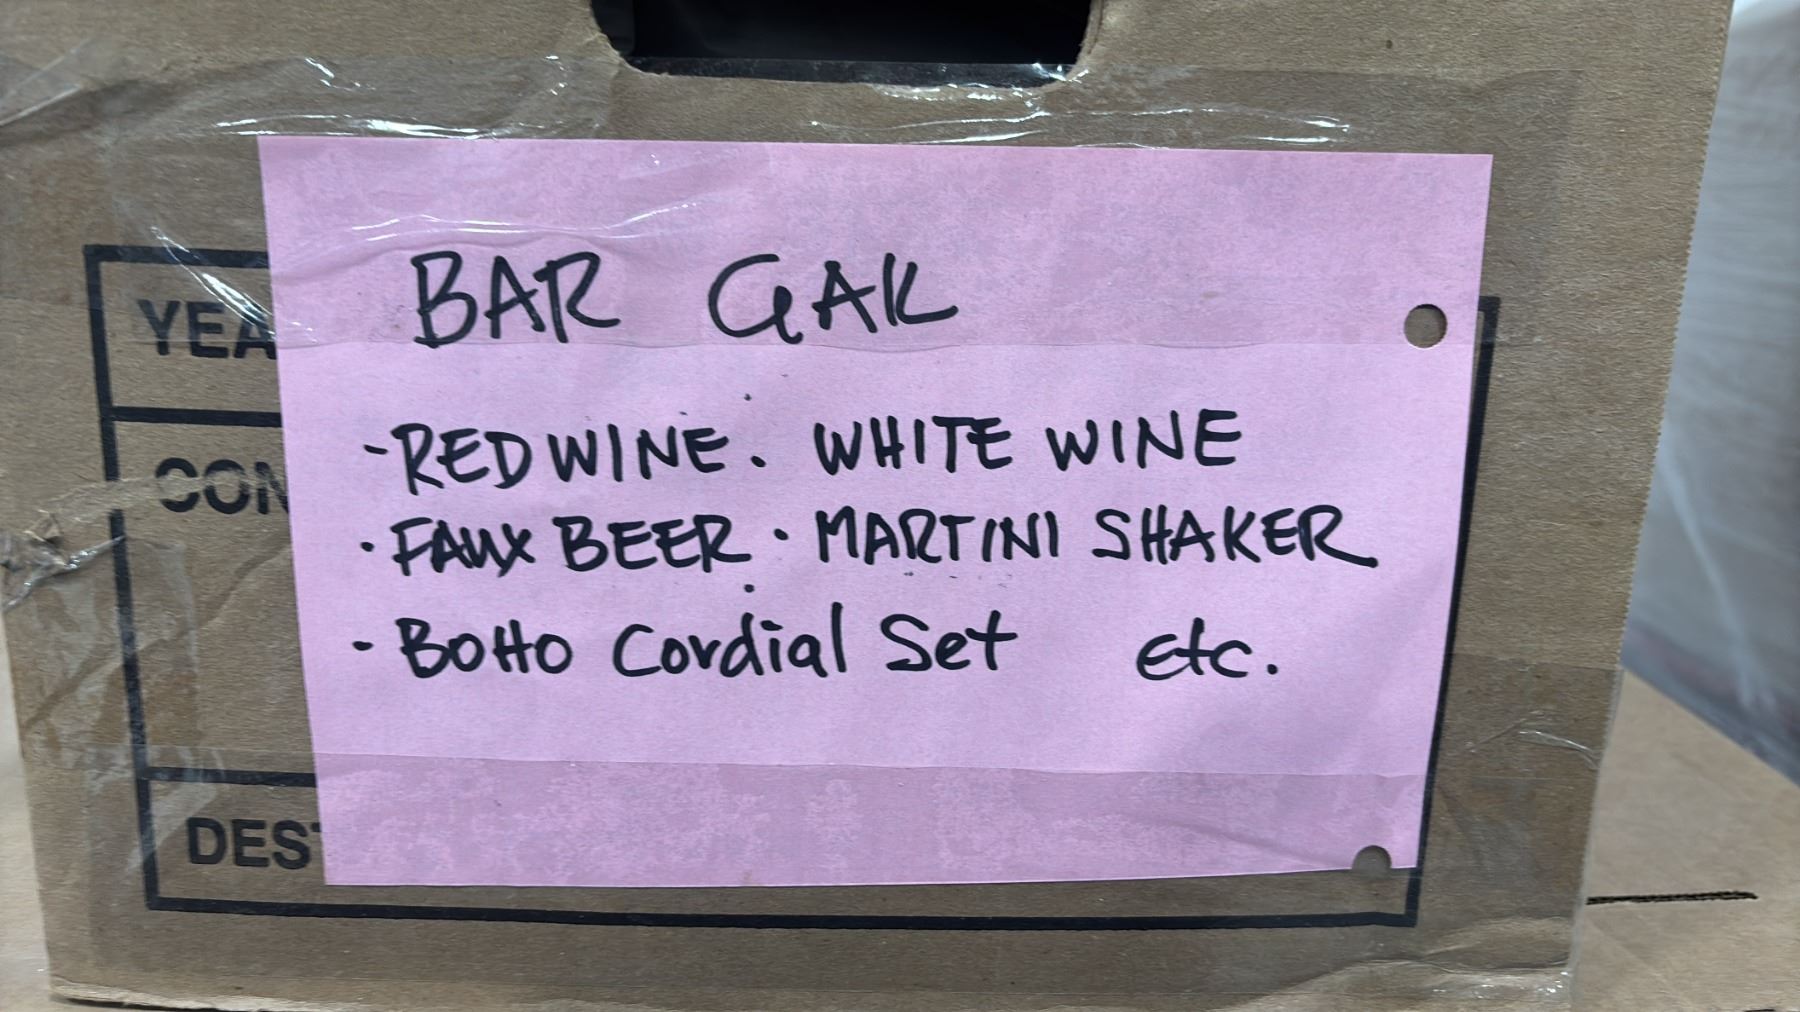 BAR GAK
YEA
- RED WINE. WHITE WINE
CON
· FAUX BEER · MARTINI SHAKER
- BOHO Cordial Set etc.
DEST